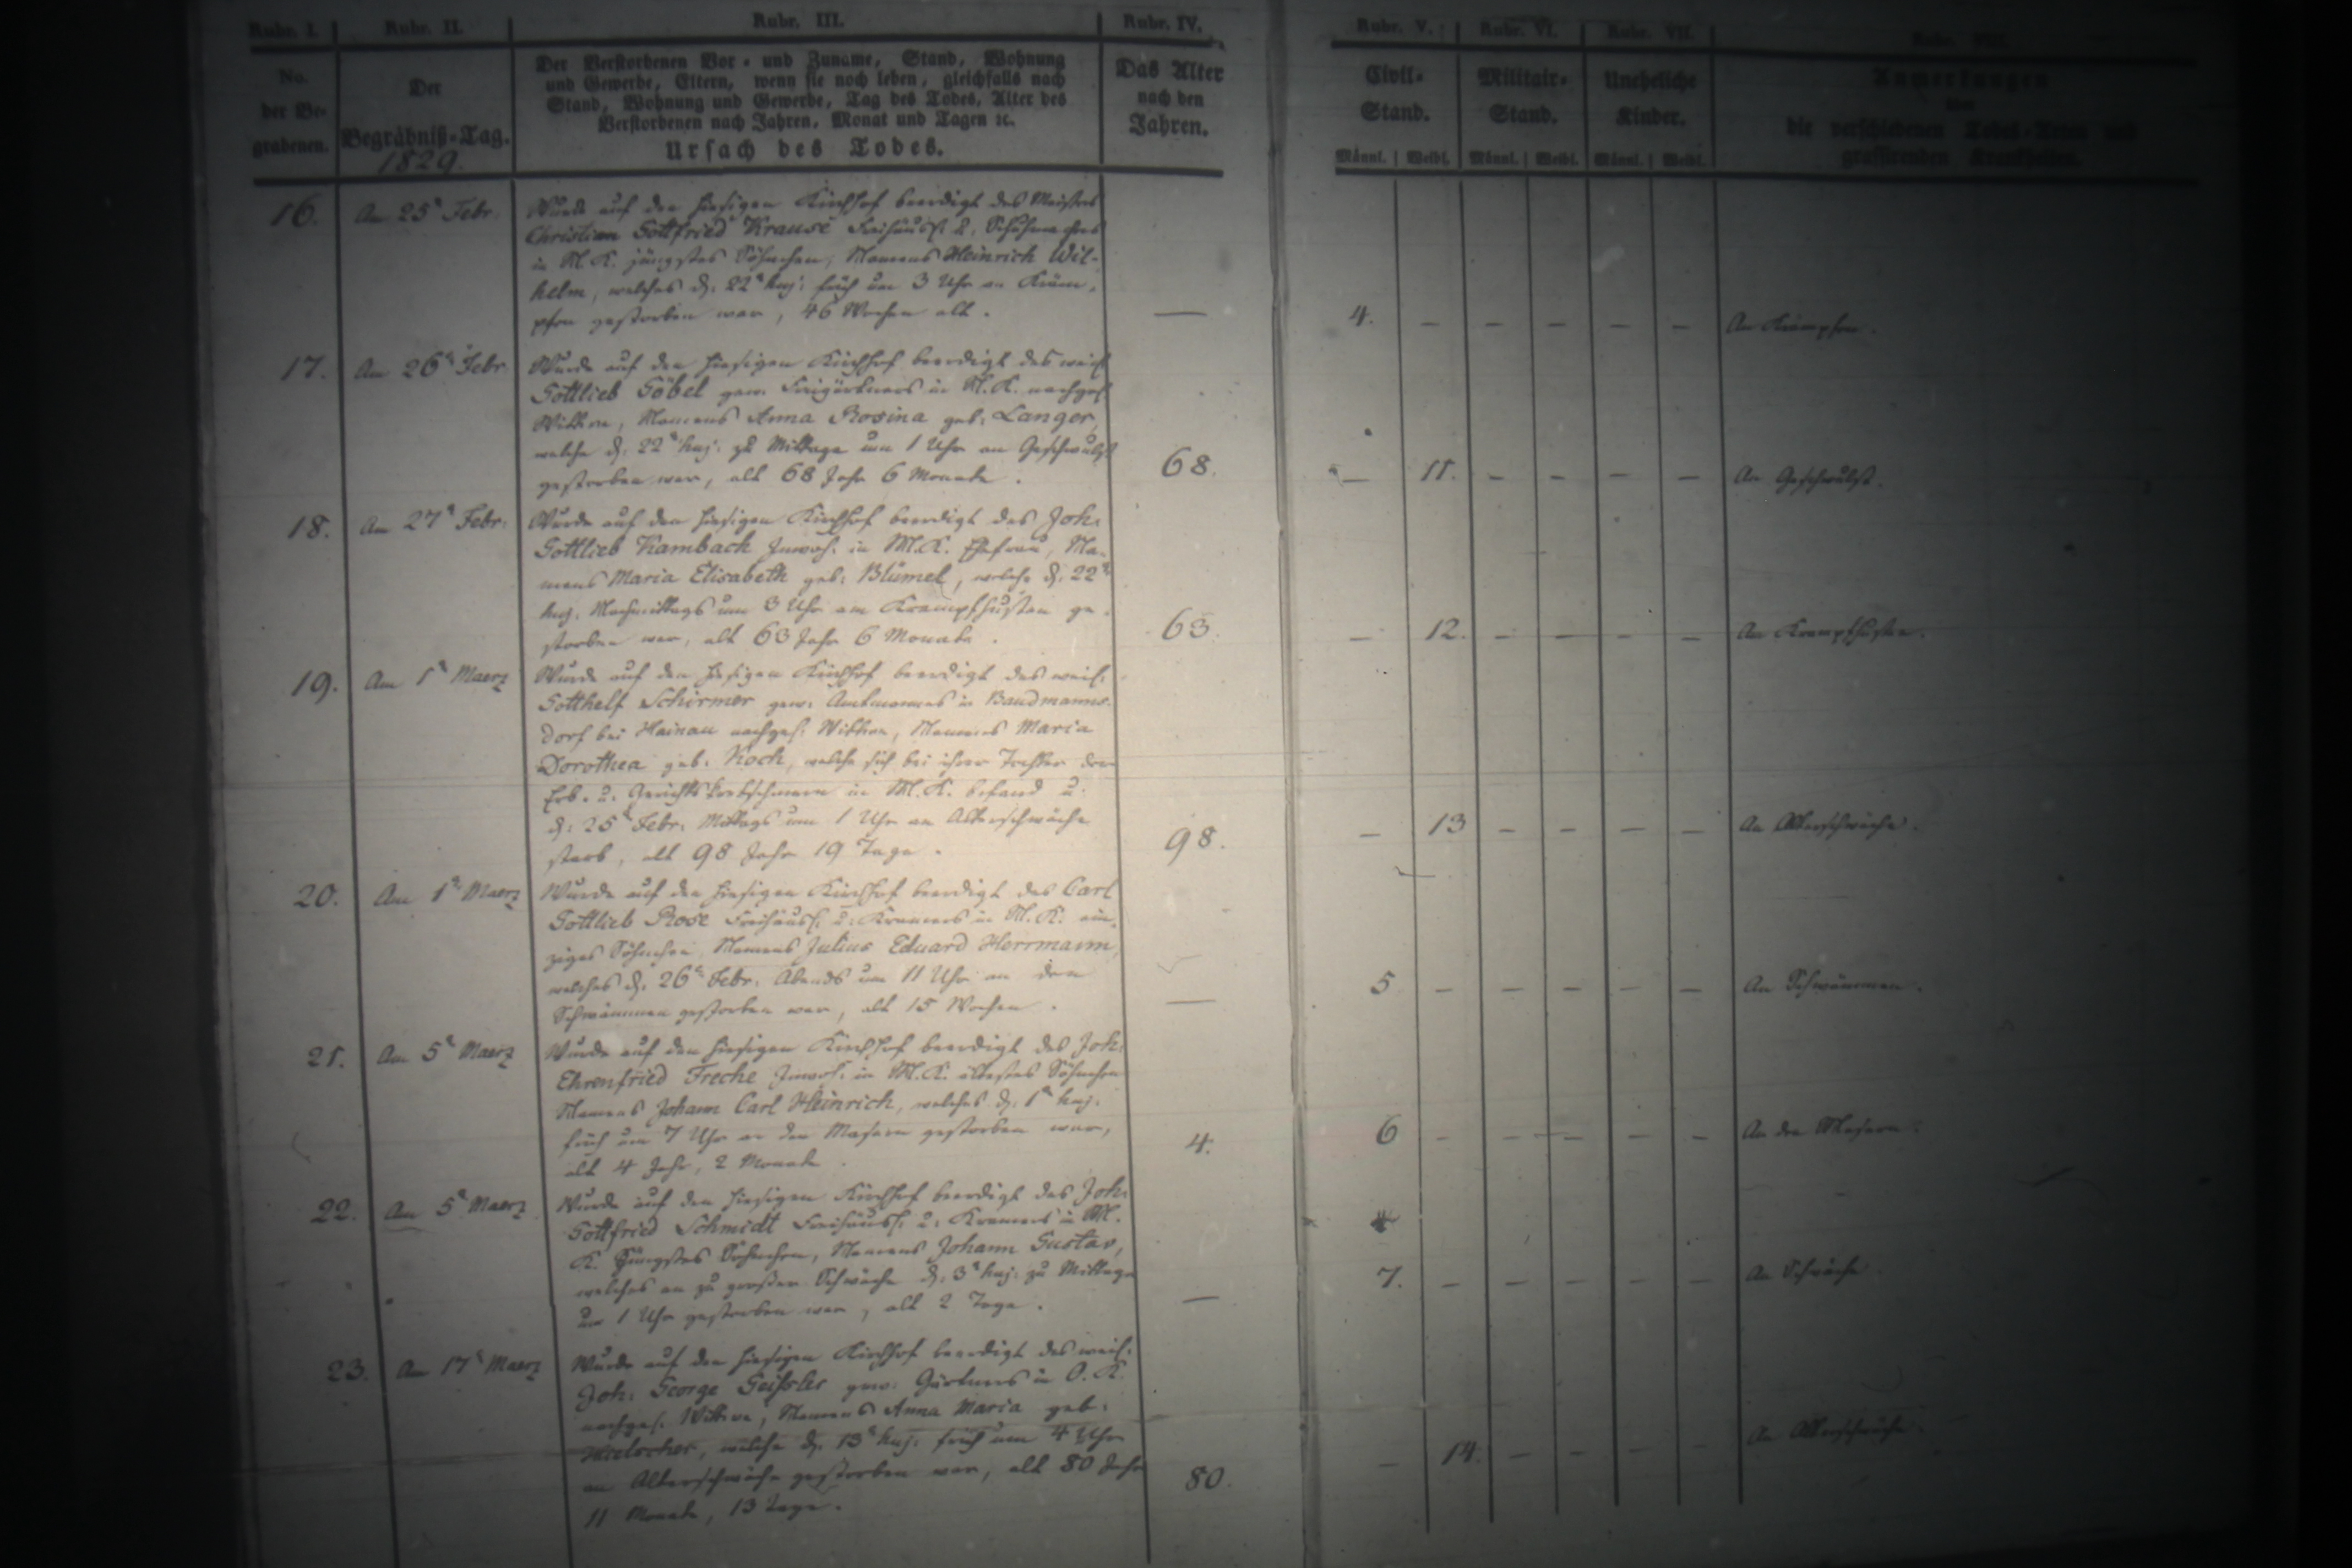 Rubr. I. Rubr. II. Rubr. III. Rubr. IV. Rubr. V. Rubr. VI. Rubr. VII. Rubr. VIII.
No.
der Be-
grabenen.
Der
Begräbniß-Tag.
1829.
Der Verstorbenen Vor- und Zuname, Stand, Wohnung
und Gewerbe, Eltern, wenn sie noch leben, gleichfalls nach
Stand, Wohnung und Gewerbe, Tag des Todes, Alter des
Verstorbenen nach Jahren, Monat und Tagen ꝛc.
Ursach des Todes.
Das Alter
nach den
Jahren.
Civil-
Stand.
Männl. Weibl.
Militair-
Stand.
Männl. Weibl.
Uneheliche
Kinder.
Männl. Weibl.
Anmerkungen
über
die verschiedenen Todes-Arten und
grassirenden Krankheiten.
16. Am 25n Febr. Wurde auf den hiesigen Kirchhof beerdigt des Meisters
Christian Gottfried Krause Freihäusl. u. Schuhmachers
in M. K. jüngstes Söhnchen, Namens Heinrich Wil-
helm, welches d. 22n huj. früh um 3 Uhr an Kräm-
pfen gestorben war, 46 Wochen alt. — 4. – – – – – An Krämpfen.
17. Am 26n Febr. Wurde auf den hiesigen Kirchhof beerdigt des weil.
Gottlieb Göbel gew. Freigärtners in M. K. nachgel.
Wittwe, Namens Anna Rosina geb. Langer,
welche d. 22n huj. zu Mittage um 1 Uhr an Geschwulst
gestorben war, alt 68 Jahr 6 Monate. 68. – 11. – – – – An Geschwulst.
18. Am 27n Febr. Wurde auf den hiesigen Kirchhof beerdigt des Joh.
Gottlieb Kambach Inwoh. in M. K. Ehefrau, Na-
mens Maria Elisabeth geb. Blümel, welche d. 22n
huj. Nachmittags um 3 Uhr am Krampfhusten ge-
storben war, alt 63 Jahr 6 Monate. 63. – 12. – – – – An Krampfhusten.
19. Am 1n Maerz Wurde auf den hiesigen Kirchhof beerdigt des weil.
Gotthelf Schirmer gew. Amtmannes in Baudmanns-
dorf bei Hainau nachgel. Wittwe, Namens Maria
Dorothea geb. Koch, welche sich bei ihrer Tochter der
Erb- u. Gerichtskretschmern in M. K. befand u.
d. 25n Febr. Mittags um 1 Uhr an Altersschwäche
starb, alt 98 Jahr 19 Tage. 98. – 13 – – – – An Altersschwäche.
20. Am 1n Maerz Wurde auf den hiesigen Kirchhof beerdigt des Carl
Gottlieb Rose Freihäusl. u. Kramers in M. K. ein-
ziges Söhnchen, Namens Julius Eduard Herrmann,
welches d. 26n Febr. Abends um 11 Uhr an den
Schwämmen gestorben war, alt 15 Wochen. — 5 – – – – – An Schwämmen.
21. Am 5n Maerz Wurde auf den hiesigen Kirchhof beerdigt des Joh.
Ehrenfried Freche Inwoh. in M. K. ältestes Söhnchen
Namens Johann Carl Heinrich, welches d. 1n huj.
früh um 7 Uhr an den Masern gestorben war,
alt 4 Jahr, 2 Monate. 4. 6 – – – – – An den Masern.
22. Am 5n Maerz Wurde auf den hiesigen Kirchhof beerdigt des Joh.
Gottfried Schmidt Freihäusl. u. Kramers in M.
K. Jüngstes Söhnchen, Namens Johann Gustav,
welches an zu großer Schwäche d. 3n huj. zu Mittage
um 1 Uhr gestorben war, alt 2 Tage. — 7. – – – – – An Schwäche.
23. Am 17n Maerz Wurde auf den hiesigen Kirchhof beerdigt des weil.
Joh. George Geissler gew. Gärtners in O. K.
nachgel. Wittwe, Namens Anna Maria geb.
welche d. 13n huj. früh um 4 Uhr
an Altersschwäche gestorben war, alt 80 Jahr
11 Monate, 13 Tage. 80. – 14. – – – – An Altersschwäche.